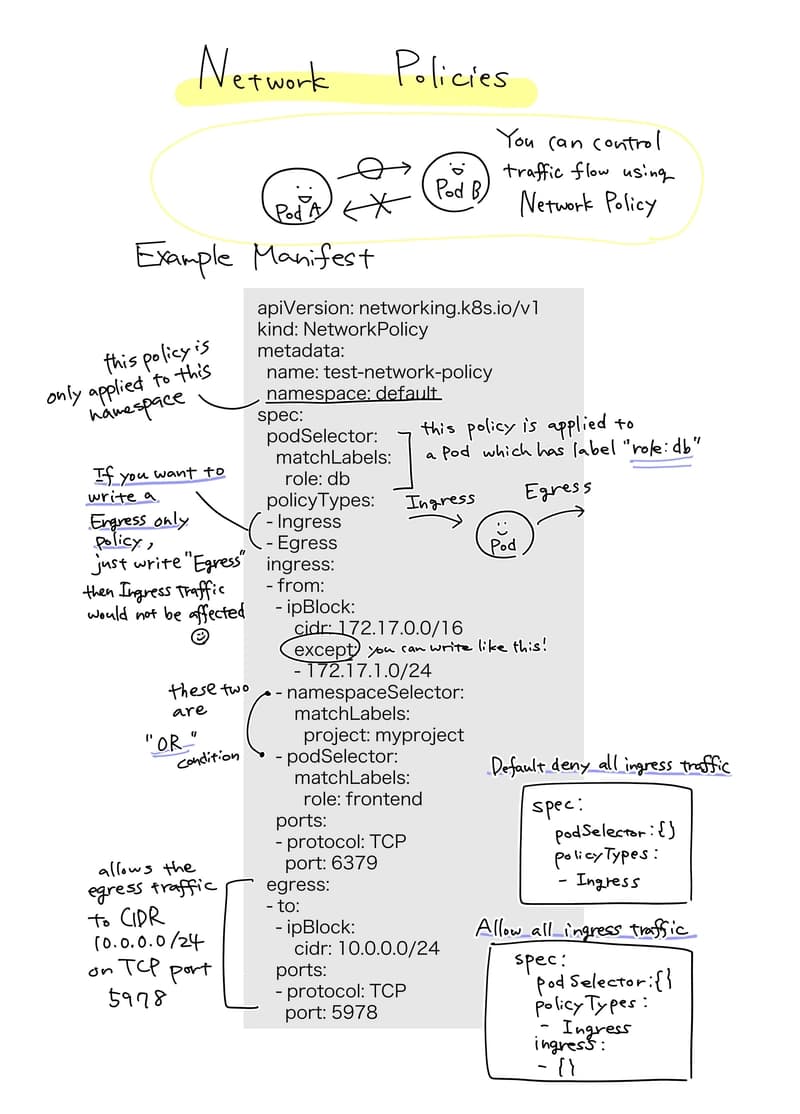 Network Policies
Pod A
Pod B
You can control
traffic flow using
Network Policy
Example Manifest
apiVersion: networking.k8s.io/v1
kind: NetworkPolicy
metadata:
name: test-network-policy
namespace: default
this policy is
only applied to this
namespace
spec:
podSelector:
matchLabels:
role: db
this policy is applied to
a Pod which has label "role: db"
policyTypes:
- Ingress
- Egress
If you want to
write a
Engress only
policy,
just write "Egress"
then Ingress Traffic
would not be affected
Ingress
Egress
Pod
ingress:
- from:
- ipBlock:
cidr: 172.17.0.0/16
except: you can write like this!
- 172.17.1.0/24
- namespaceSelector:
matchLabels:
project: myproject
- podSelector:
matchLabels:
role: frontend
these two
are
"OR"
condition
ports:
- protocol: TCP
port: 6379
egress:
- to:
- ipBlock:
cidr: 10.0.0.0/24
ports:
- protocol: TCP
port: 5978
allows the
egress traffic
to CIDR
10.0.0.0/24
on TCP port
5978
Default deny all ingress traffic
spec:
podSelector:{}
policyTypes:
- Ingress
Allow all ingress traffic
spec:
podSelector:{}
policyTypes:
- Ingress
ingress:
- {}